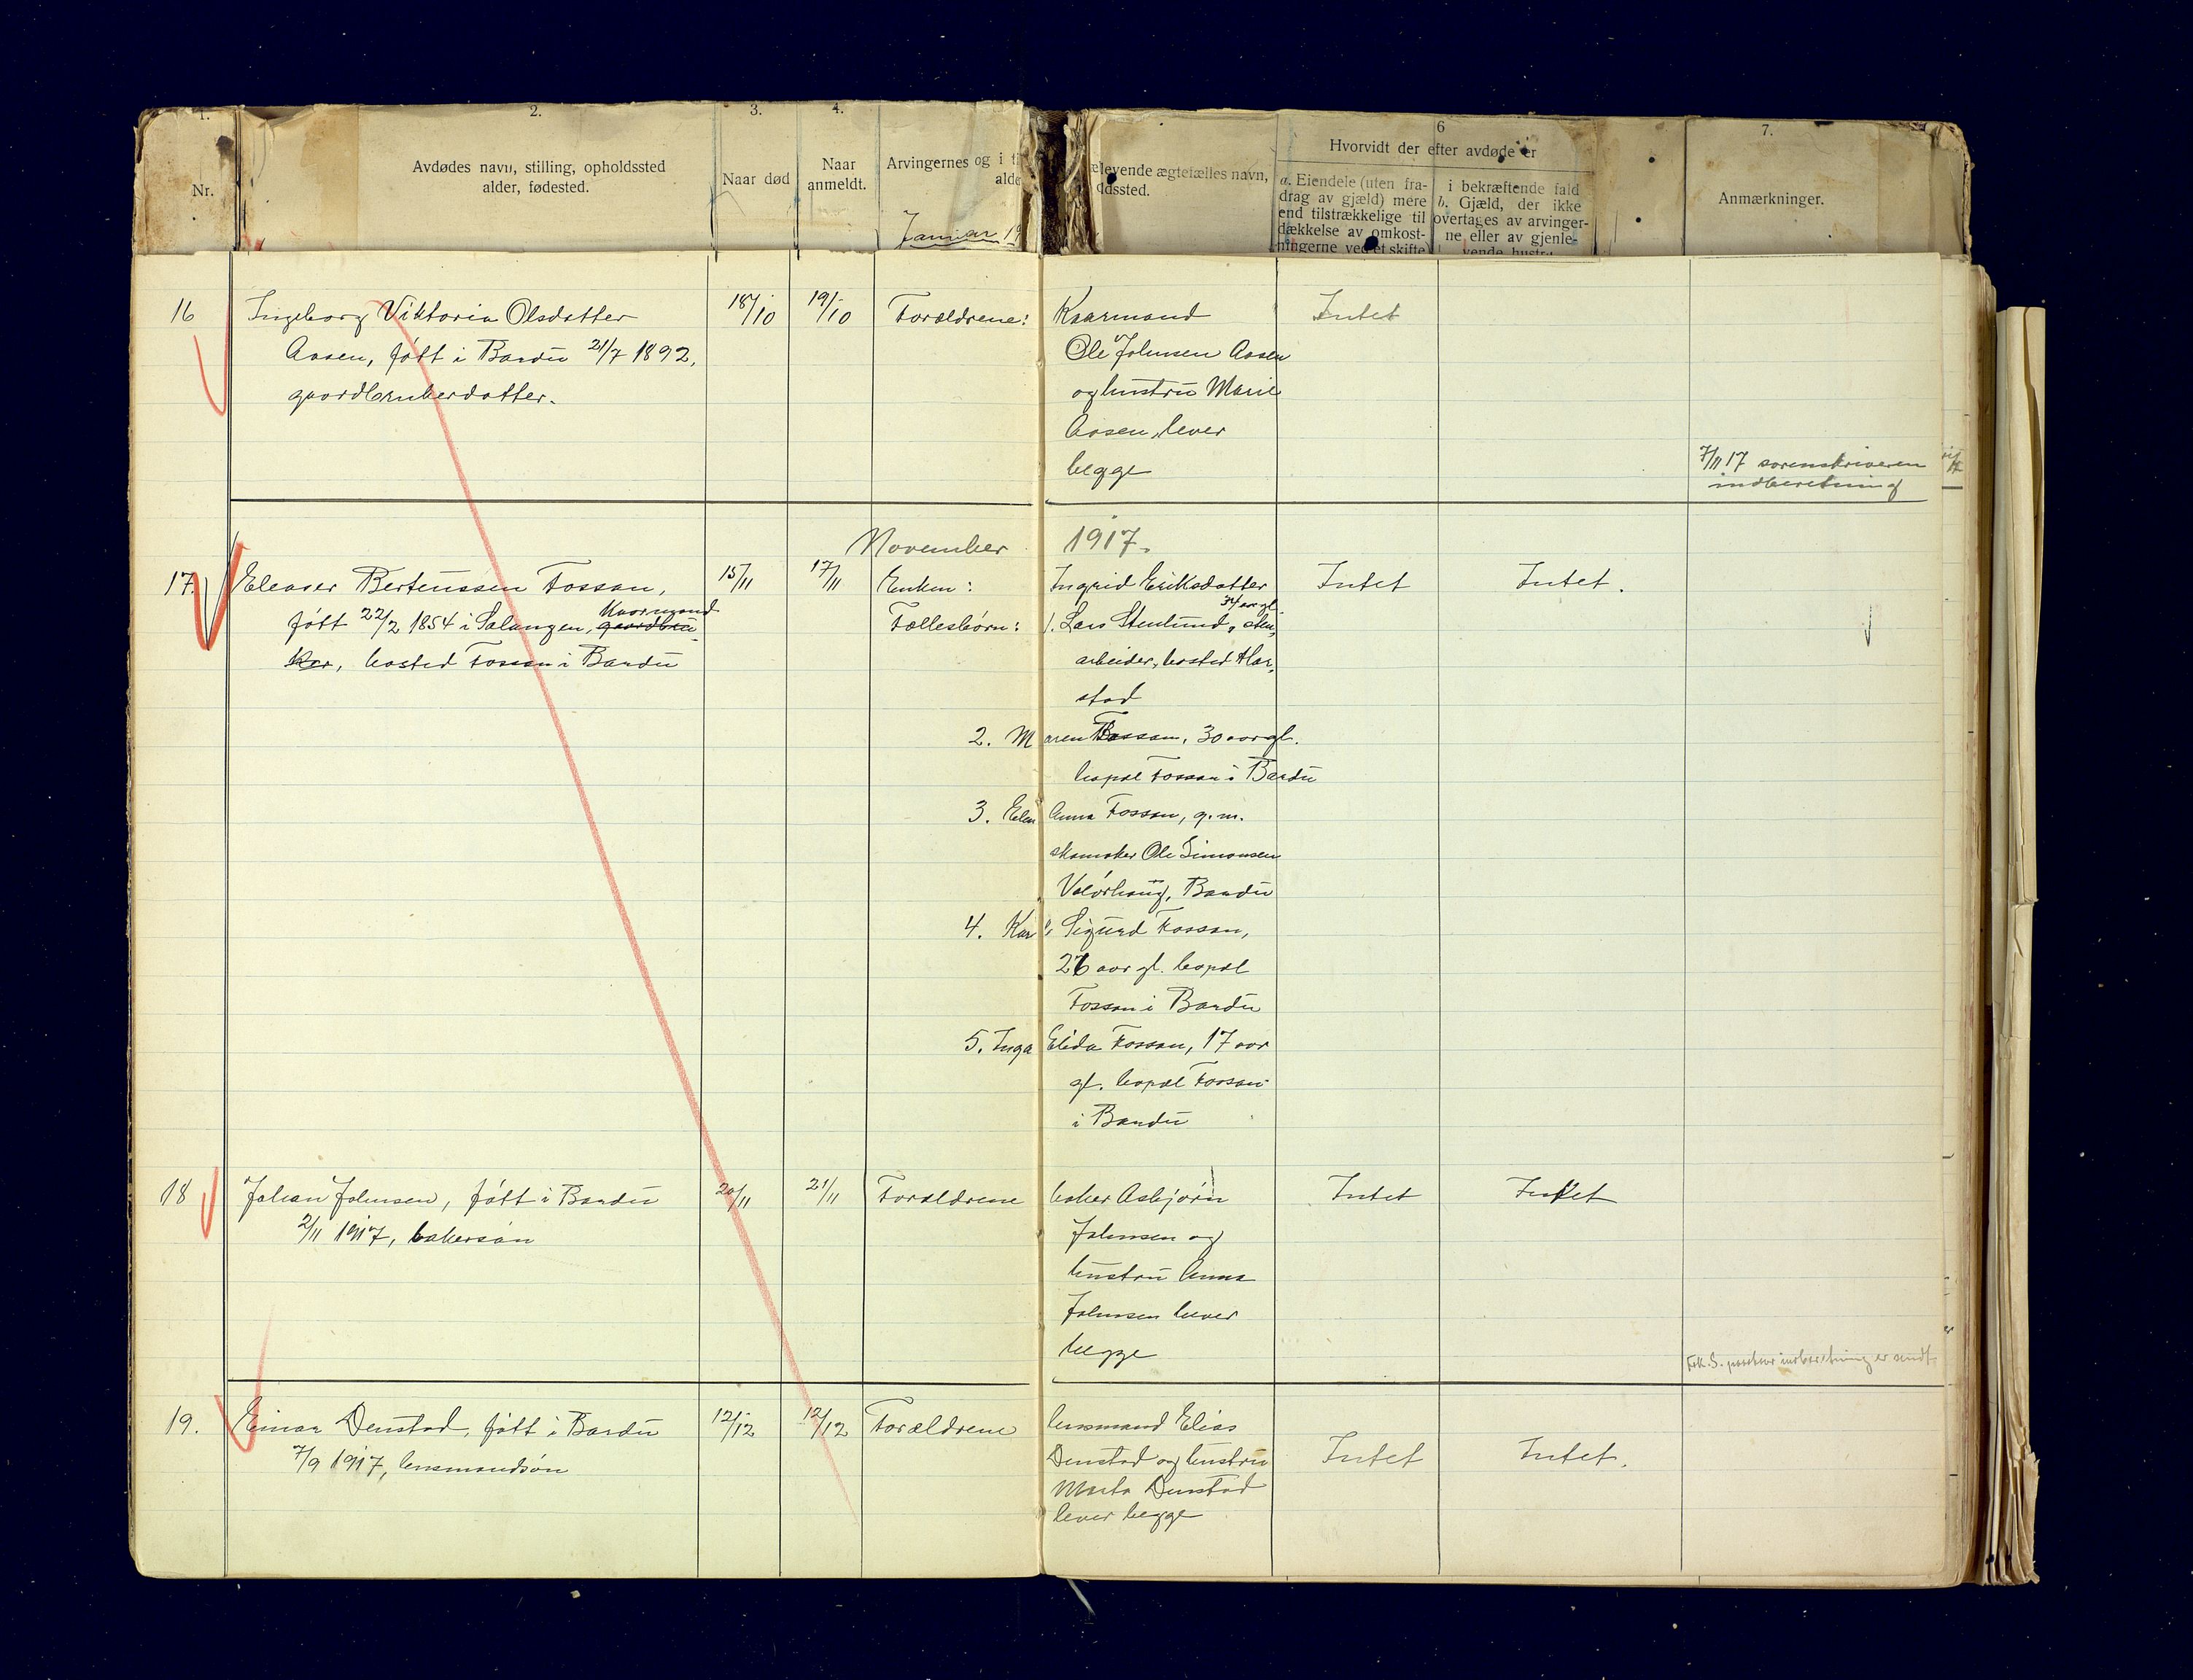 1.
2.
3.
4.
6
7.
Nr.
Avdødes navn, stilling, opholdssted
alder, fødested.
Naar død
Naar
anmeldt.
Arvingernes og i
alde
Januar 19
levende ægtefælles navn,
dssted.
Hvorvidt der efter avdøde er
a. Eiendele (uten fra-
drag av gjæld) mere
end tilstrækkelige til
dækkelse av omkost-
ningerne ved et skifte
i bekræftende fald
b. Gjæld, der ikke
overtages av arvinger-
ne eller av gjenle-
vende hustru
Anmærkninger.
16 Ingeborg Viktoria Olsdatter 18/10 19/10 Forældrene: Kaarmand Intet
Aasen, født i Bardu 21/7 1892, Ole Johnsen Aasen
gaardbrukerdatter. og hustru Marie
Aasen, lever
begge
7/11 17 sorenskriveren
indberetning
November 1917.
17. Eleaser Berteussen Fossan, 15/11 17/11 Enken: Ingrid Eriksdatter Intet Intet.
født 22/2 1854 i Salangen, gaardbru- Kaarmand Fællesbørn: 1. Lars Stenlund, 34 aar gl. sten-
ker, bosted Fossan i Bardu arbeider, bosted Har-
stad
2. Maren Fossan, 30 aar gl.
bopæl Fossan i Bardu
3. Elen Anna Fossan, g. m.
skomaker Ole Simonsen
Bardu
4. Sigurd Fossan,
26 aar gl. bopæl
Fossan i Bardu
5. Inga Elida Fossan, 17 aar
gl. bopæl Fossan
i Bardu
18 Johan Johnsen, født i Bardu 20/11 21/11 Forældrene baker Asbjørn Intet Intet
2/11 1917, bakersøn Johnsen og
hustru Anna
Johnsen lever
begge
indberetning er sendt.
19. Einar Denstad, født i Bardu 12/12 12/12 Forældrene lensmand Elias
7/9 1917, lensmandsøn Denstad og hustru Intet Intet.
Marta Denstad
lever begge